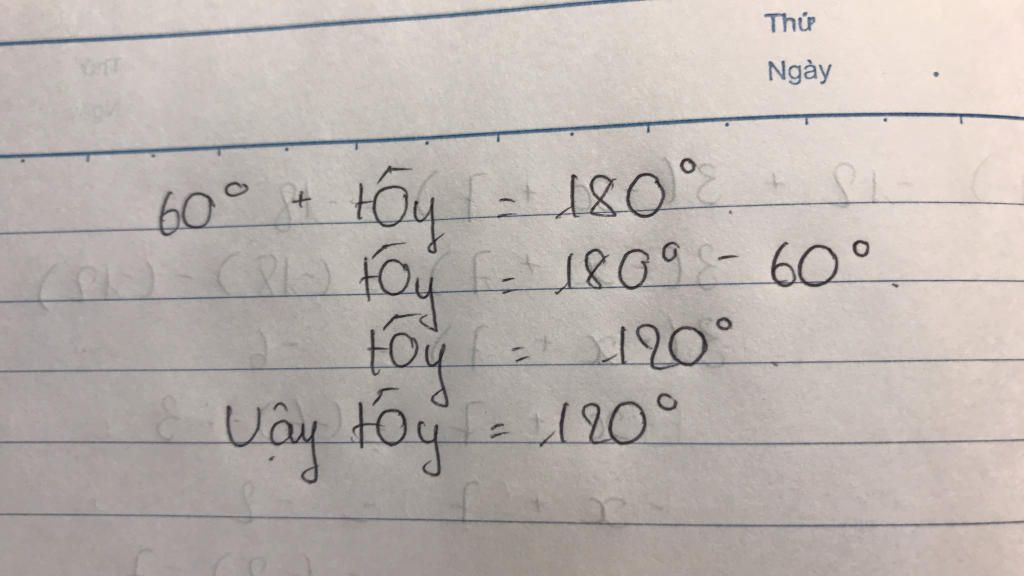 Thứ
Ngày
60° + tÔy = 180°
tÔy = 180° - 60°
tÔy = 120°
Vậy tÔy = 120°